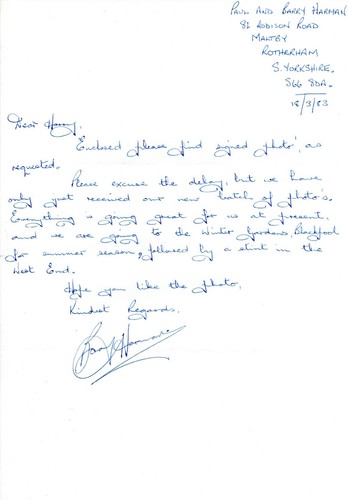 PAUL AND BARRY HARMAN
82 ADDISON ROAD
MALTBY
ROTHERHAM
S. YORKSHIRE.
S66 8DA.
15/3/83
Dear Harry,
Enclosed please find signed photo', as
requested.
Please excuse the delay, but we have
only just received our new batch of photo's.
Everything is going great for us at present,
and we are going to the Winter Gardens, Blackpool
for summer season, followed by a stint in the
West End.
Hope you like the photo,
Kindest Regards,
Barry Harman